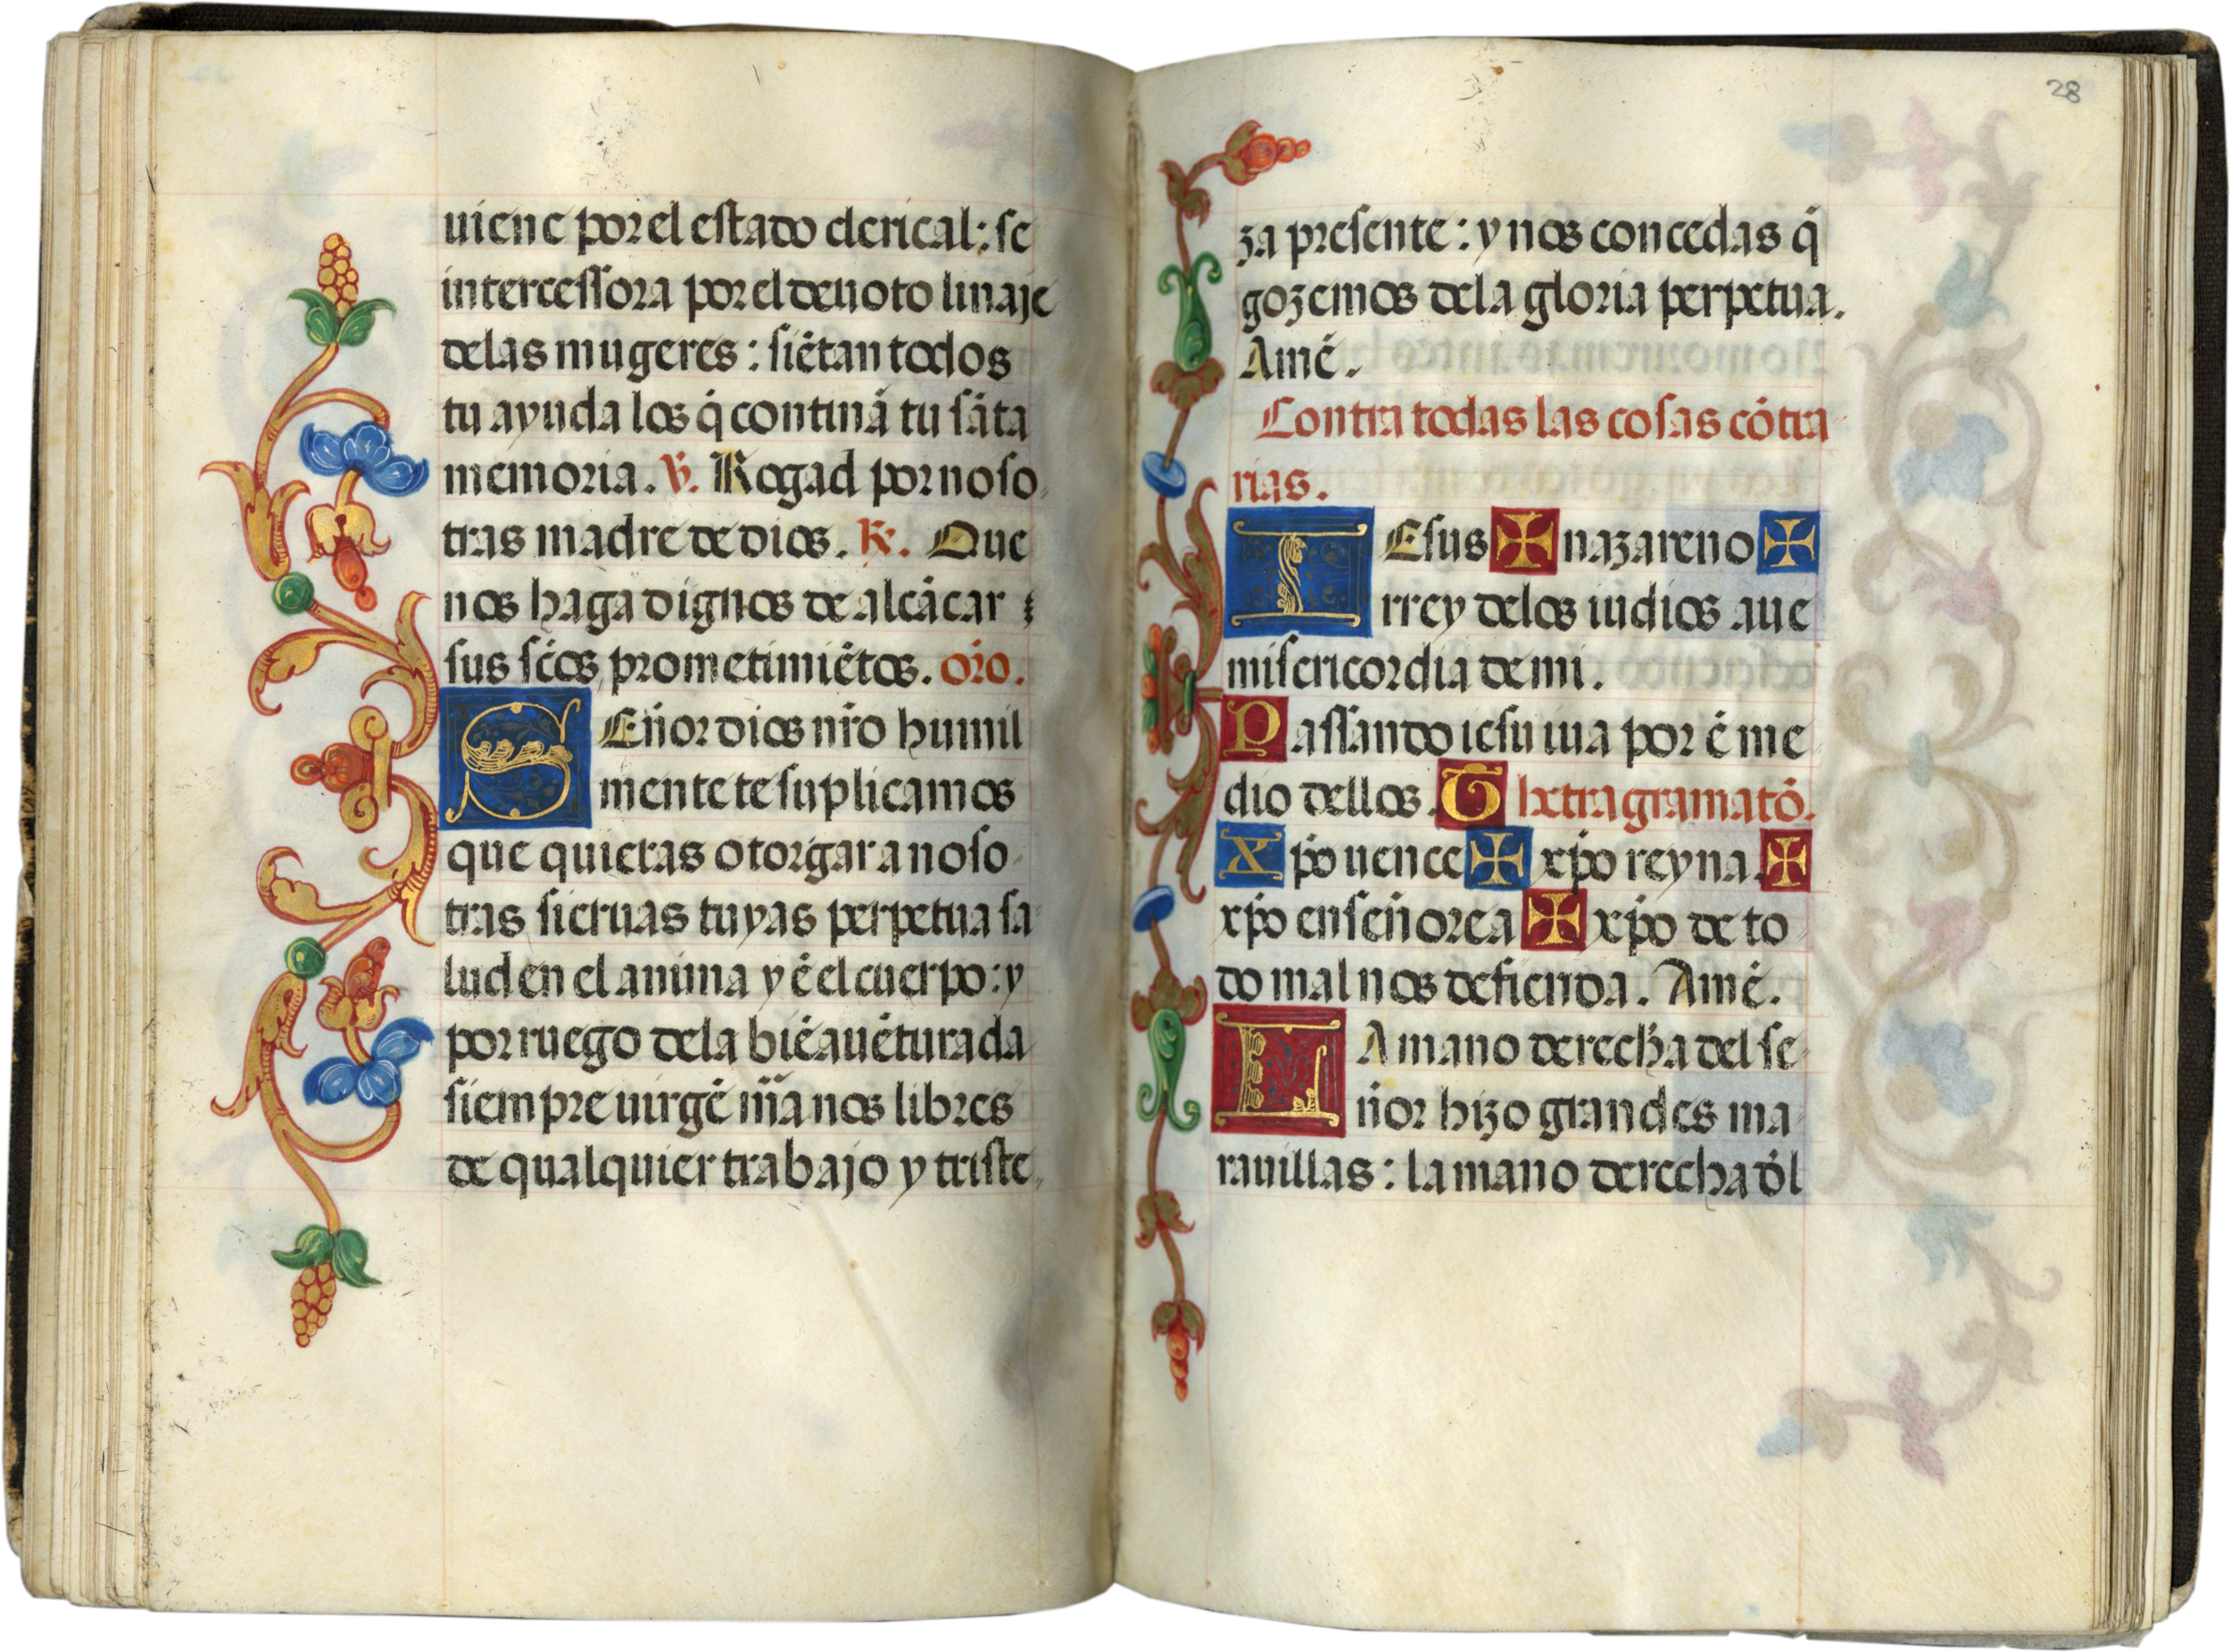 uiene por el estado clerical: se
intercessora por el deuoto linaje
delas mugeres: siẽtan todos
tu ayuda los q̃ continã tu sãta
memoria. V. Rogad por noso
tras madre de dios. R. Que
nos haga dignos de alcãcar
sus sc̃os prometimiẽtos. or̃o.
SEñor dios nr̃o humil
mente te suplicamos
que quieras otorgar a noso
tras sieruas tuyas perpetua sa
lud en el anima y ẽ el cuerpo: y
por ruego dela biẽauẽturada
siempre uirgẽ m̃a nos libres
de qualquier trabajo y triste
28
za presente: y nos concedas q̃
gozemos dela gloria perpetua.
Amẽ.
Contra todas las cosas cõtra
rias.
IEsus ✠ nazareno ✠
rrey delos iudios aue
misericordia de mi.
Passando iesu iua por ẽ me
dio dellos. Thetragramatõ.
Xp̃o uence ✠ xp̃o reyna. ✠
xp̃o enseñorea ✠ xp̃o de to
do mal nos defienda. Amẽ.
LA mano derecha del se
ñor hizo grandes ma
rauillas: la mano derecha d̃l